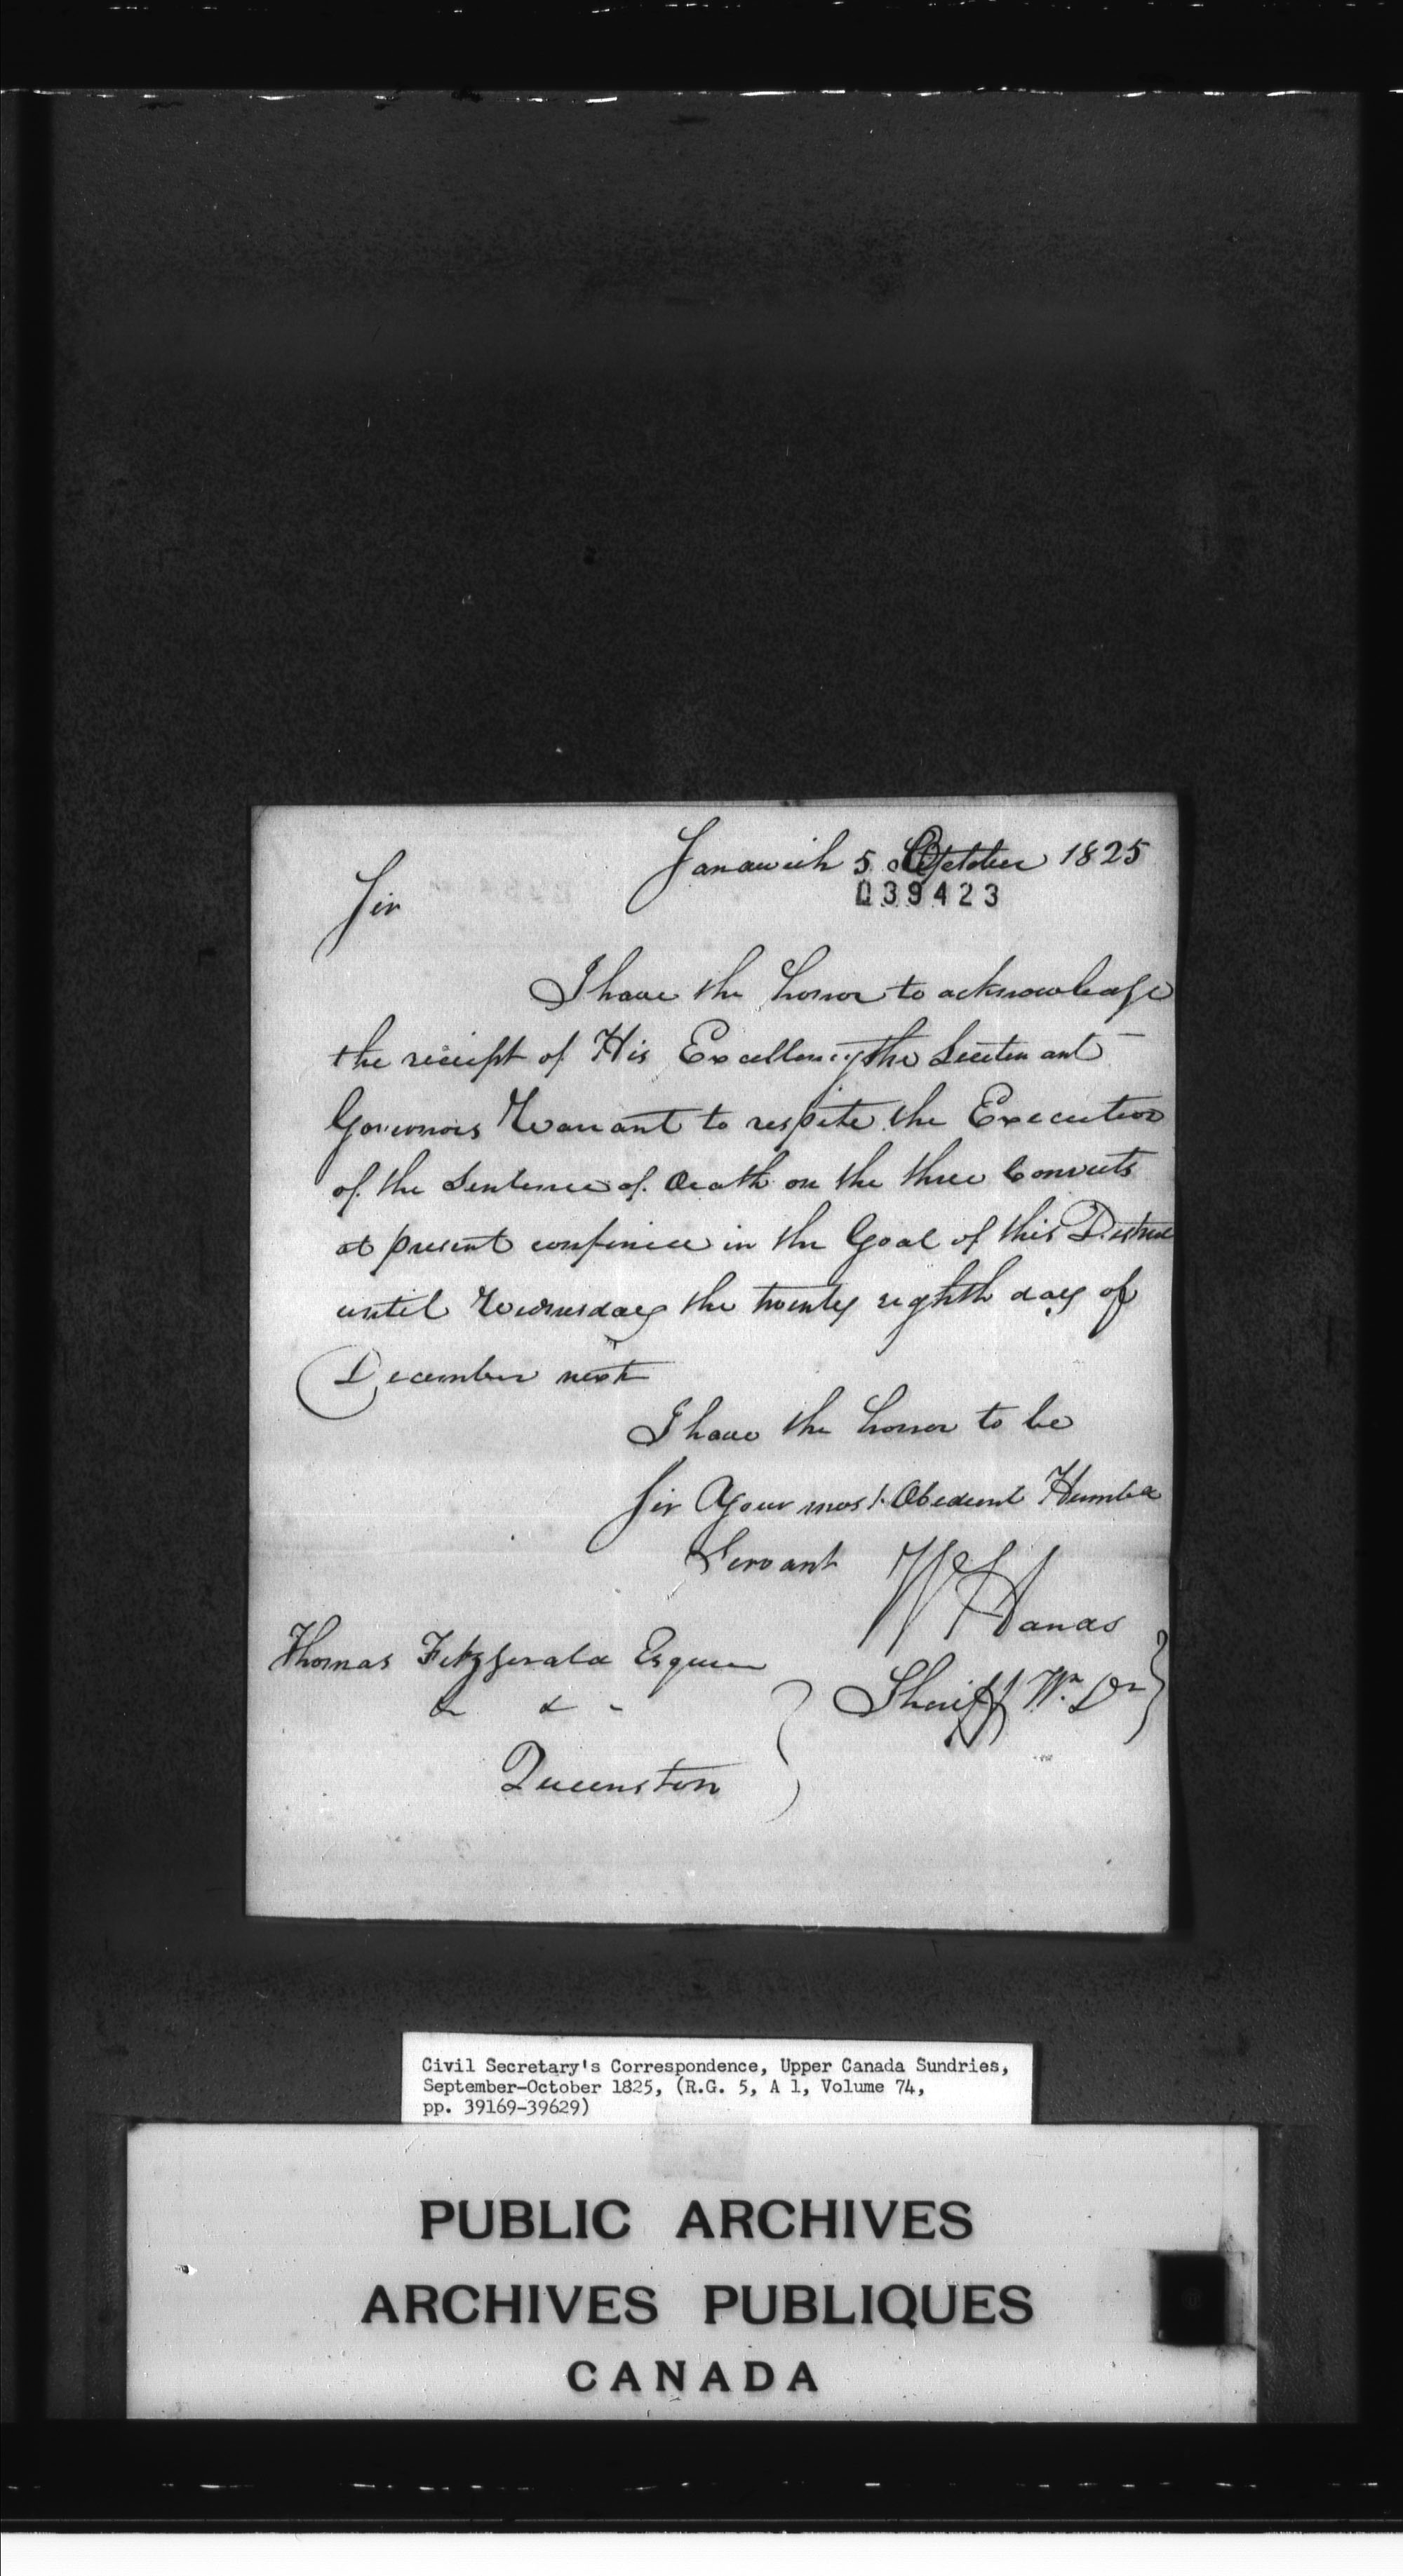 Sandwich 5 October 1825
039423
Sir
I have the honor to acknowledge
the receipt of His Excellency the Lieutenant
Governors Warrant to respite the Execution
of the Sentence of Death on the three Convicts
at present confined in the Goal of this District
until Wednesday the twenty eighth day of
December next
I have the honor to be
Sir Your most Obedient Humble
Servant W Hands
Sheriff Wn Dn
Thomas Fitzgerald Esquire
& & -
Queenston
Civil Secretary's Correspondence, Upper Canada Sundries,
September-October 1825, (R.G. 5, A 1, Volume 74,
pp. 39169-39629)
PUBLIC ARCHIVES
ARCHIVES PUBLIQUES
CANADA